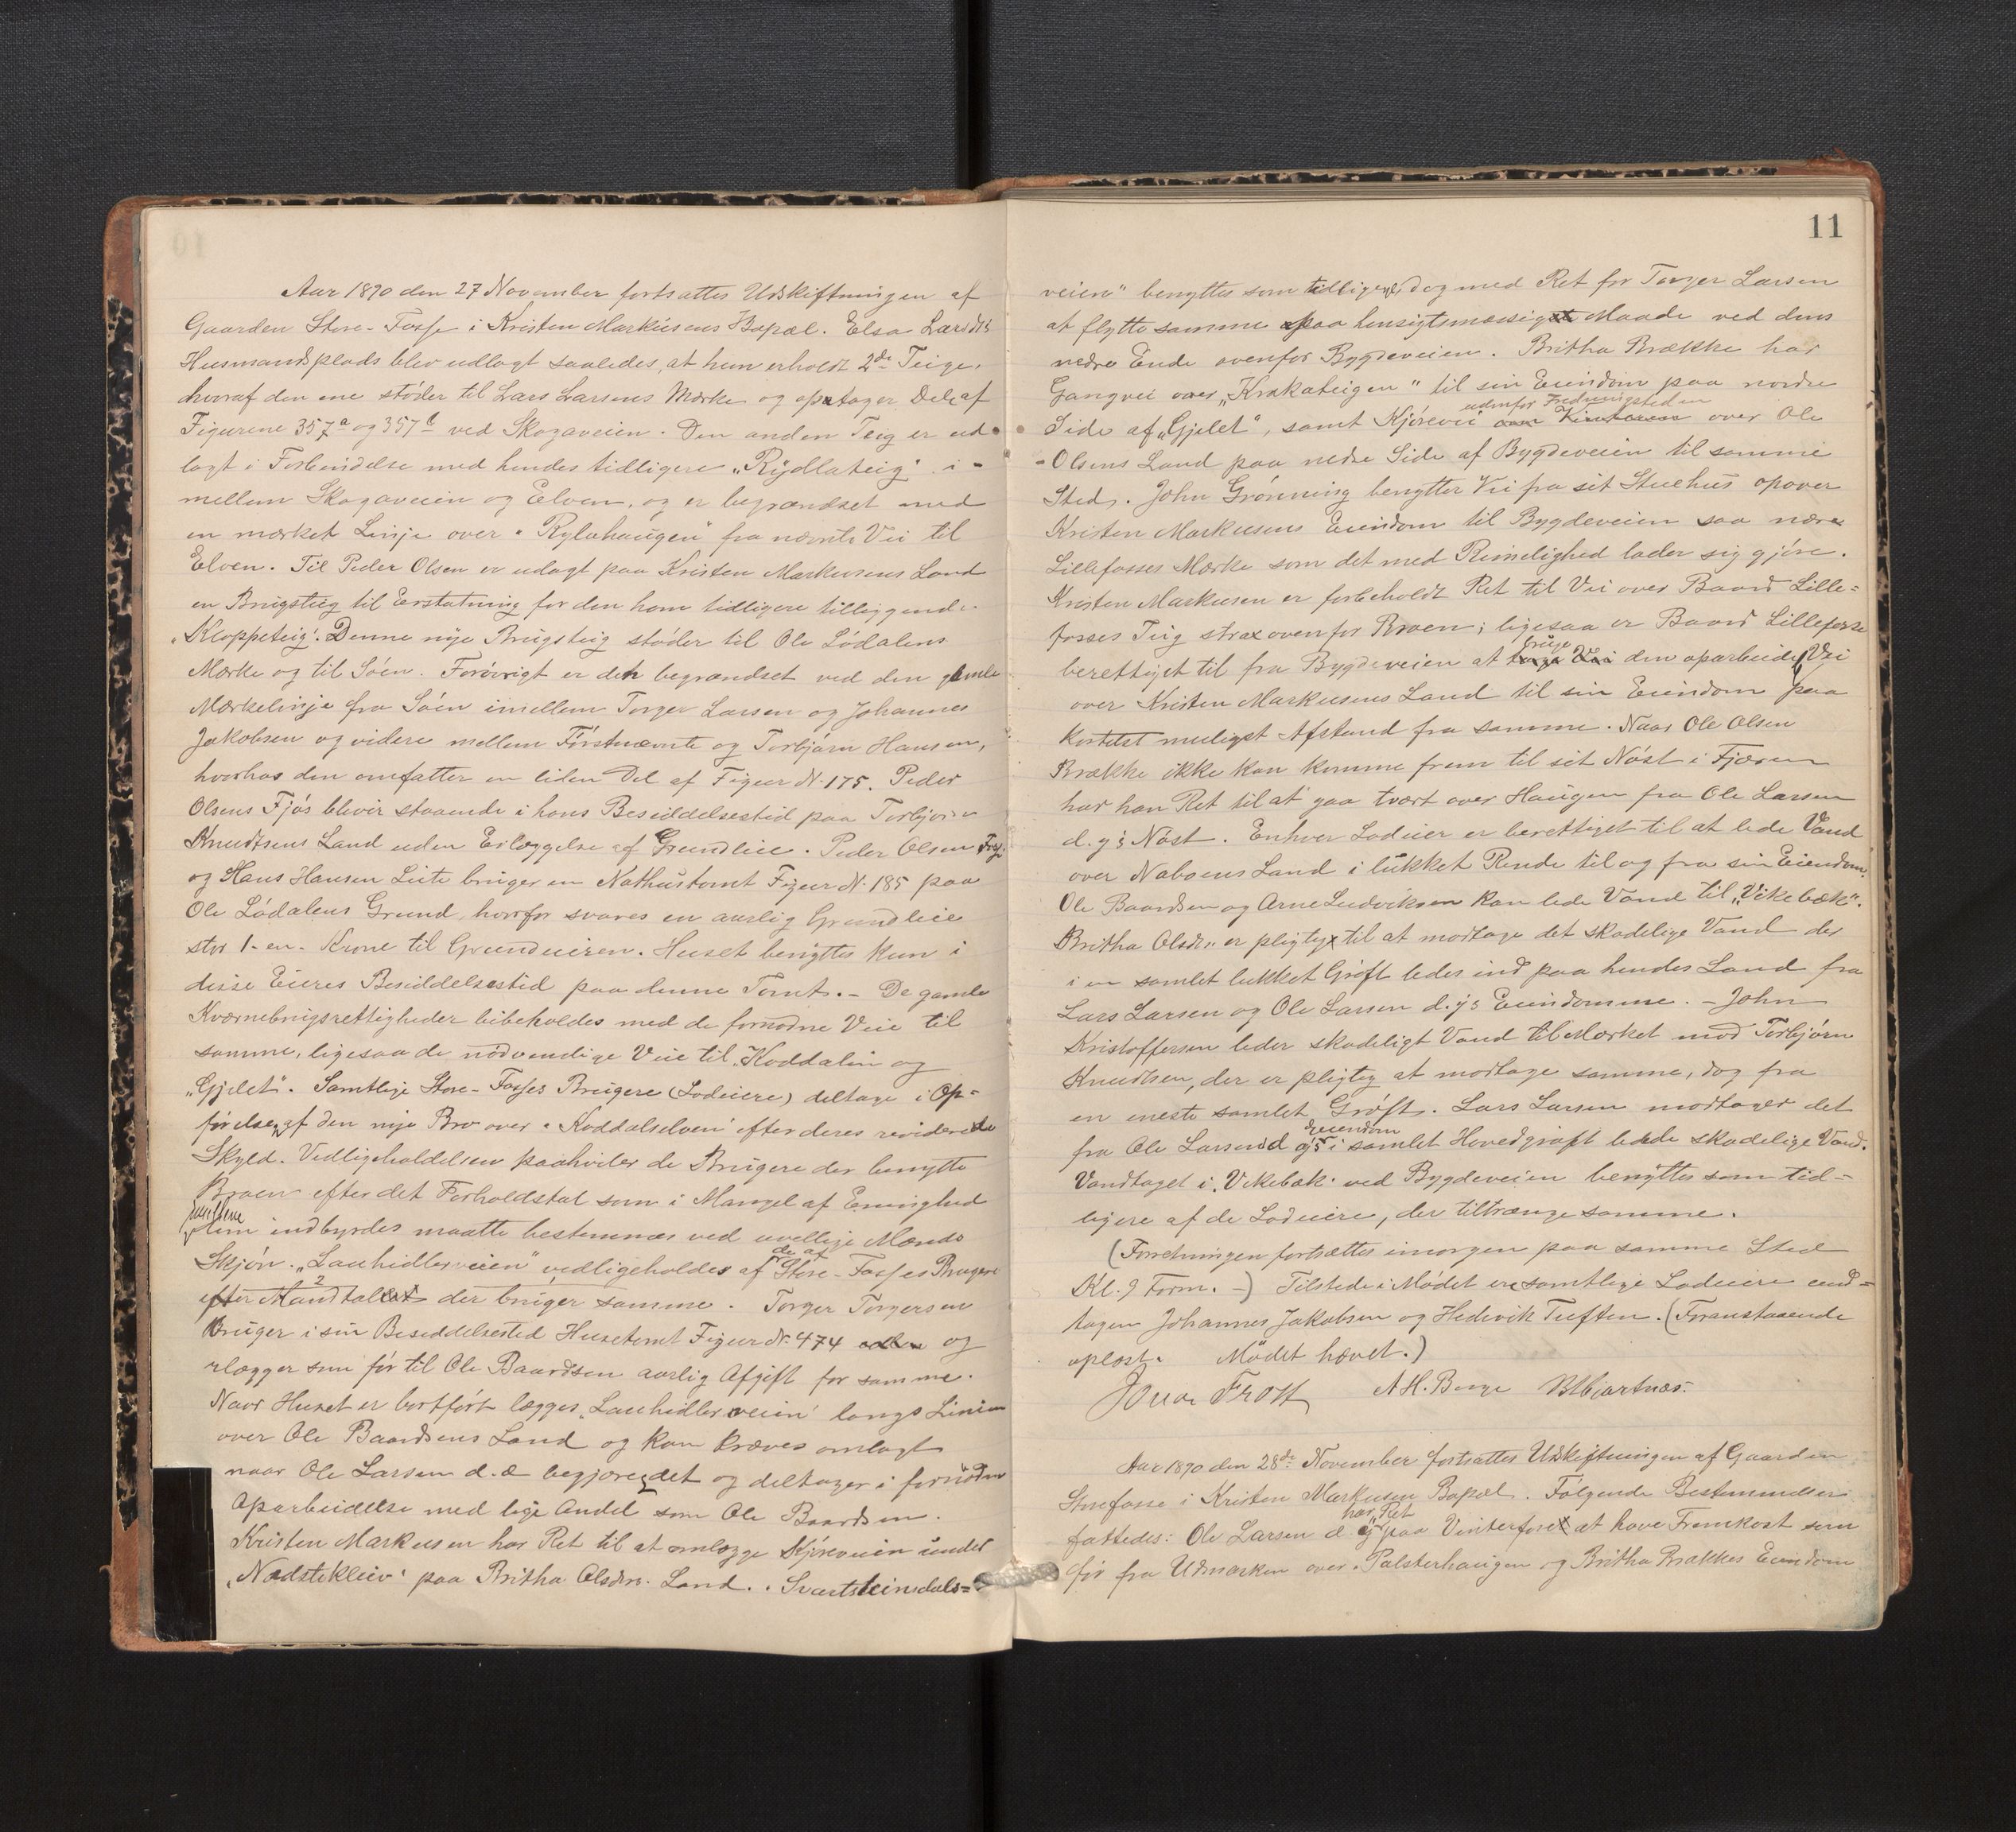 Aar 1890 den 27 November fortsattes Udskiftningen af
Gaarden Store-Fosse i Kristen Markusens Bopæl. Elsa Larsdtrs
Husmandsplads blev udlagt saaledes, at hun erholdt 2de Teige,
hvoraf den ene støder til Lars Larsens Mærke og optager Dele af
Figurene 357a og 357b ved Skogaveien. Den anden Teig er ud-
lagt i Forbindelse med hendes tidligere „Rydlateig" i-
mellem Skogaveien og Elven, og er begrændset med
en mærket Linje over „Rylahaugen" fra nævnte Vei til
Elven. Til Peder Olsen er udlagt paa Kristen Markusens Land
en Brugsteig til Erstatning for den ham tidligere tilliggende
„Kloppeteig". Denne nye Brugsteig støder til Ole Lødalens
Mærke og til Søen. Forøvrigt er den begrændset ved den gamle
Mærkelinje fra Søen imellem Torger Larsen og Johannes
Jakobsen og videre mellem Førstnævnte og Torbjørn Hansen,
hvorhos den omfatter en liden Del af Figur N. 175. Peder
Olsens Fjøs blever staaende i hans Besiddelsestid paa Torbjørn
Knudtsens Land uden Erlæggelse af Grundleie. Peder Olsen Fosse
og Hans Hansen Liete bruger en Nøthustomt Figur N. 185 paa
Ole Lødalens Grund, hvorfor svares en aarlig Grundleie
stor 1 - en - Krone til Grundeieren. Huset benyttes kun i
disse Eieres Besiddelsestid paa denne Tomt. - De gamle
Kværnebrugsrettigheder bibeholdes med de fornødne Veie til
samme, ligesaa de nødvendige Veie til „Koddalen og
„Gjelet". Samtlige Store-Fosses Brugere (Lodeiere) deltage i Op-
førelse af den nye Bro over „Koddalselven" efter deres reviderede
Skyld. Vedligeholdelsen paahviler de Brugere der benytte
Broen efter det Forholdstal som i Mangel af Enighed
mellem
dem indbyrdes maatte bestemmes ved uvillige Mænds
Skjøn. „Lauhidlerveien" vedligeholdes af de af Store-Fosses Brugere
efter Mandtallet der bruger samme. Torger Torgersen
Bruger i sin Besiddelsestid Hustomt Figur N. 474 og
erlægger som før til Ole Baardsen aarlig Afgift for samme.
Naar Huset er bortført lægges „Lauhidlerveien" langs Linien
over Ole Baardsens Land og kan kræves omlagt
naar Ole Larsen d.æ begjærer det og deltager i fornøden
Oparbeidelse med lige Andel som Ole Baardsen.
Kristen Markusen har Ret til at omlægge Kjøreveien under
„Nedstekleiv" paa Britha Olsdtrs. Land. „Svartsteinsdals-
11
veien" benyttes som tidligere, dog med Ret for Torger Larsen
at flytte samme paa hensigtsmæssig Maade ved dens
nedre Ende ovenfor Bygdeveien. Britha Brække har
Gangvei over „Krakateigen" til sin Eiendom paa nordre
udenfor Fredningstiden
Side af „Gjelet", samt Kjørevei over Ole
Olsens Land paa nedre Side af Bygdeveien til samme
Sted. John Grønning benytter Vei fra sit Stuehus opover
Kristen Markusens Eiendom til Bygdeveien saa nære
Lillefosses Mærke som det med Rimelighed lader sig gjøre.
Kristen Markusen er forbeholdt Ret til Vei over Baard Lille-
fosses Teig strax ovenfor Broen; ligesaa er Baard Lillefosse
bruge
berettiget til fra Bygdeveien at den oparbeidede Vei
over Kristen Markusens Land til sin Eiendom paa
kortest muligst Afstand fra samme. Naar Ole Olsen
Brække ikke kan komme frem til sit Nøst i Fjæren
har han Ret til at gaa tvært over Haugen fra Ole Larsen
d.y's Nøst. Enhver Lodeier er berettiget til at lede Vand
over Naboens Land i lukket Rende til og fra sin Eiendom.
Ole Baardsen og Arne Ludviksen kan lede Vand til „Vikebæk".
Britha Olsdr. er pligtig til at modtage det skadelige Vand der
i en samlet lukket Grøft ledes ind paa hendes Land fra
Lars Larsen og Ole Larsen d.y's Eiendomme. - John
Kristoffersen leder skadeligt Vand til Mærket mod Torbjørn
Knudtsen, der er pligtig at modtage samme, dog fra
en eneste samlet Grøft. Lars Larsen modtager det
eiendom
fra Ole Larsen d y's i samlet Hovedgrøft ledede skadelige Vand.
Vandtaget i „Vikebæk" ved Bygdeveien benyttes som tid-
ligere af de Lodeiere, der tiltrænge samme.
(Forretningen fortsættes imorgen paa samme Sted
Kl. 9 Form. -) Tilstede i Mødet ere samtlige Lodeiere und-
tagen Johannes Jakobsen og Hedevik Tuften. (Foranstaaende
oplæst. Mødet hævet.)
Jonar Frost A H. Berge
Aar 1890 den 28de November fortsattes Udskiftningen af Gaarden
Storefosse i Kristen Markusen Bopæl. Følgende Bestemmelser
har Ret
fattedes: Ole Larsen d. y paa Vinterføret at have Fremkost som
før fra Udmarken over „Palsterhaugen og Britha Brækkes Eiendom